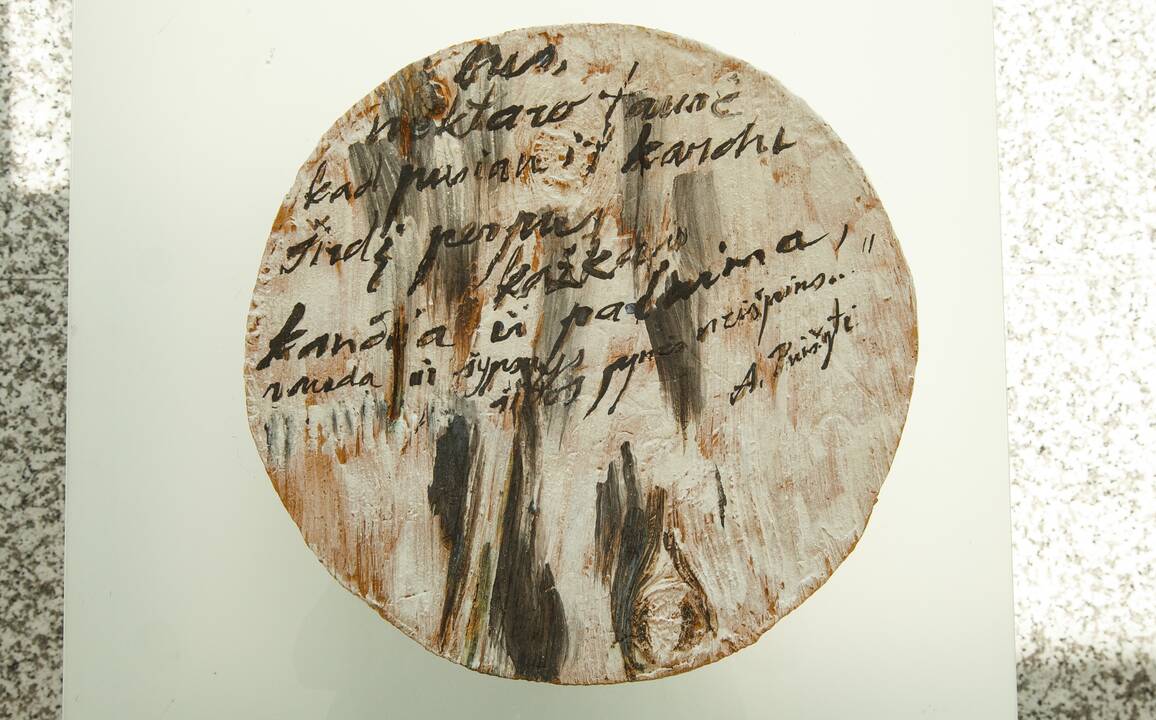 bus,
nektaro taurė
kad pusiau ir kardu
širdį perpus
kažkas
kandžia ir padurima, "
nuoda ir šypsnys
ir tos pynės neišpins..
A.